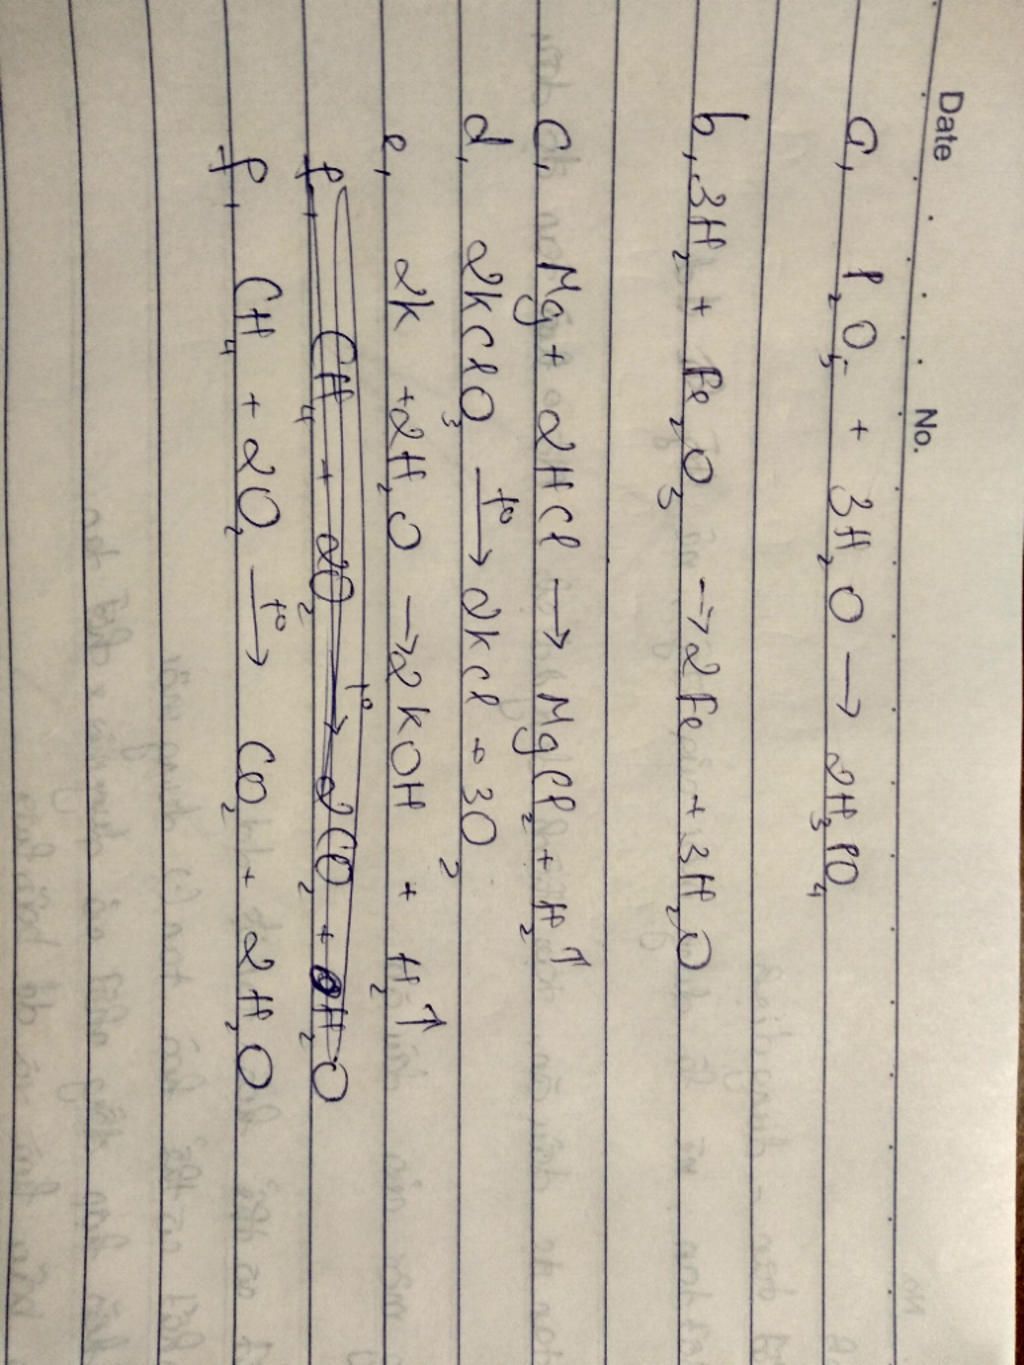 Date No.
a, P₂O₅ + 3H₂O → 2H₃PO₄
b, 3H₂ + Fe₂O₃ → 2Fe + 3H₂O
C, Mg + 2HCl → MgCl₂ + H₂↑
d, 2KClO₃ t°→ 2KCl + 3O₂
e, 2K + 2H₂O → 2KOH + H₂↑
f, CH₄ + 2O₂ t°→ 2CO₂ + H₂O
f, CH₄ + 2O₂ t°→ CO₂ + 2H₂O